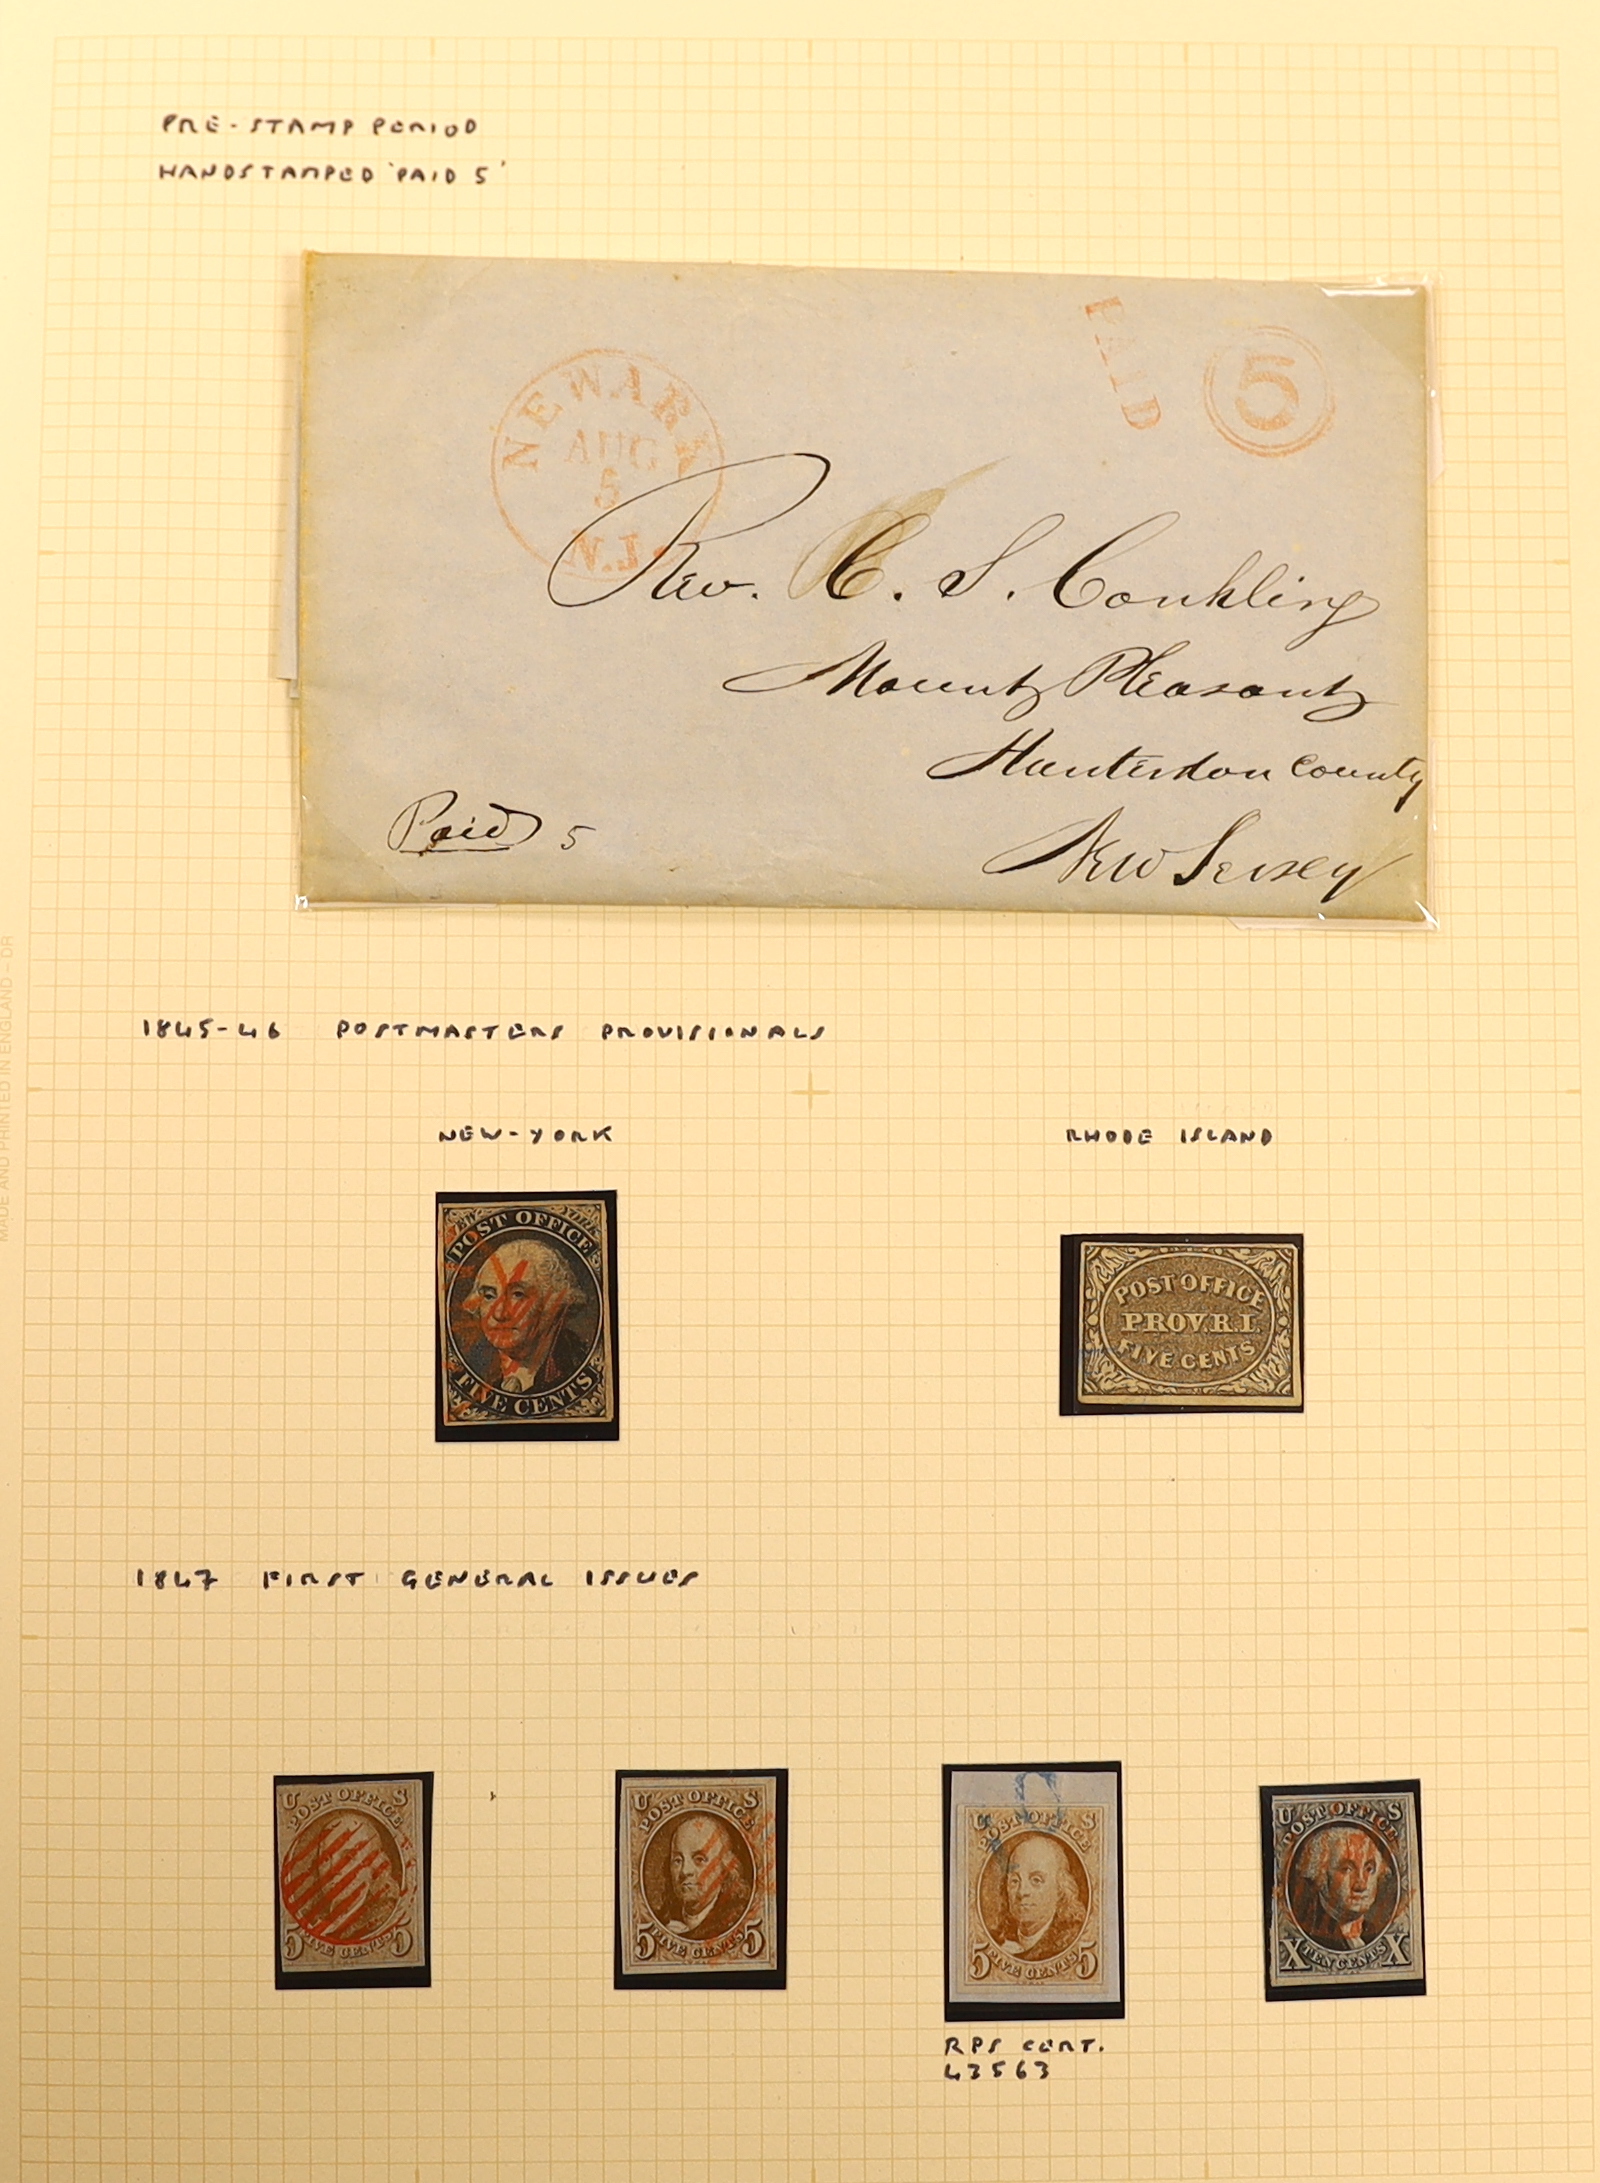 PRE-STAMP PERIOD
HANDSTAMPED 'PAID 5'
NEWARK
AUG
5
N.J.
PAID
5
Rev. C. S. Conkling
Mount Pleasant
Hunterdon County
New Jersey
Paid 5
MADE AND PRINTED IN ENGLAND - DR
1845-46 POSTMASTERS PROVISIONALS
NEW-YORK
RHODE ISLAND
NEW YORK
POST OFFICE
FIVE CENTS
POST OFFICE
PROV. R.I.
FIVE CENTS
1847 FIRST GENERAL ISSUES
U S
POST OFFICE
5 FIVE CENTS 5
U S
POST OFFICE
5 FIVE CENTS 5
U S
POST OFFICE
5 FIVE CENTS 5
U S
POST OFFICE
X TEN CENTS X
RPS CERT.
43563